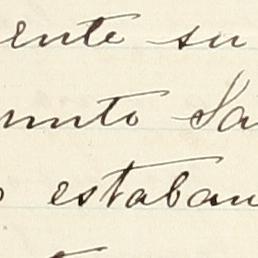 ente su
unto Sa
o estaban